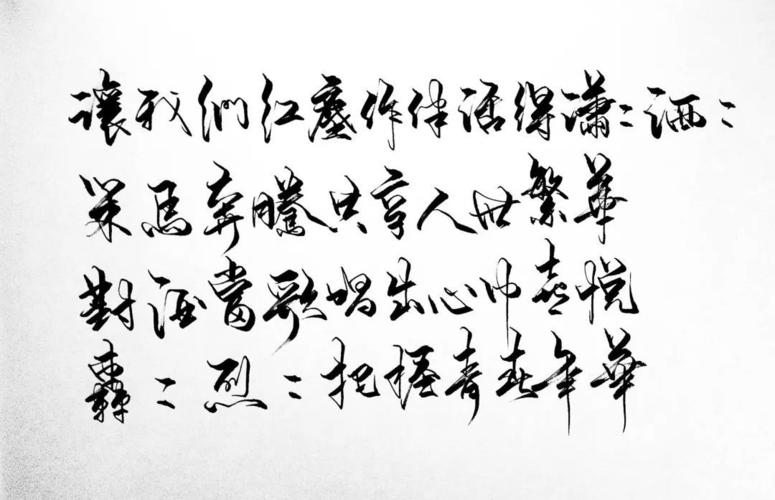 讓我們紅塵作伴活得瀟〻洒〻
策馬奔騰共享人世繁華
對酒當歌唱出心中喜悅
轟〻烈〻把握青春年華